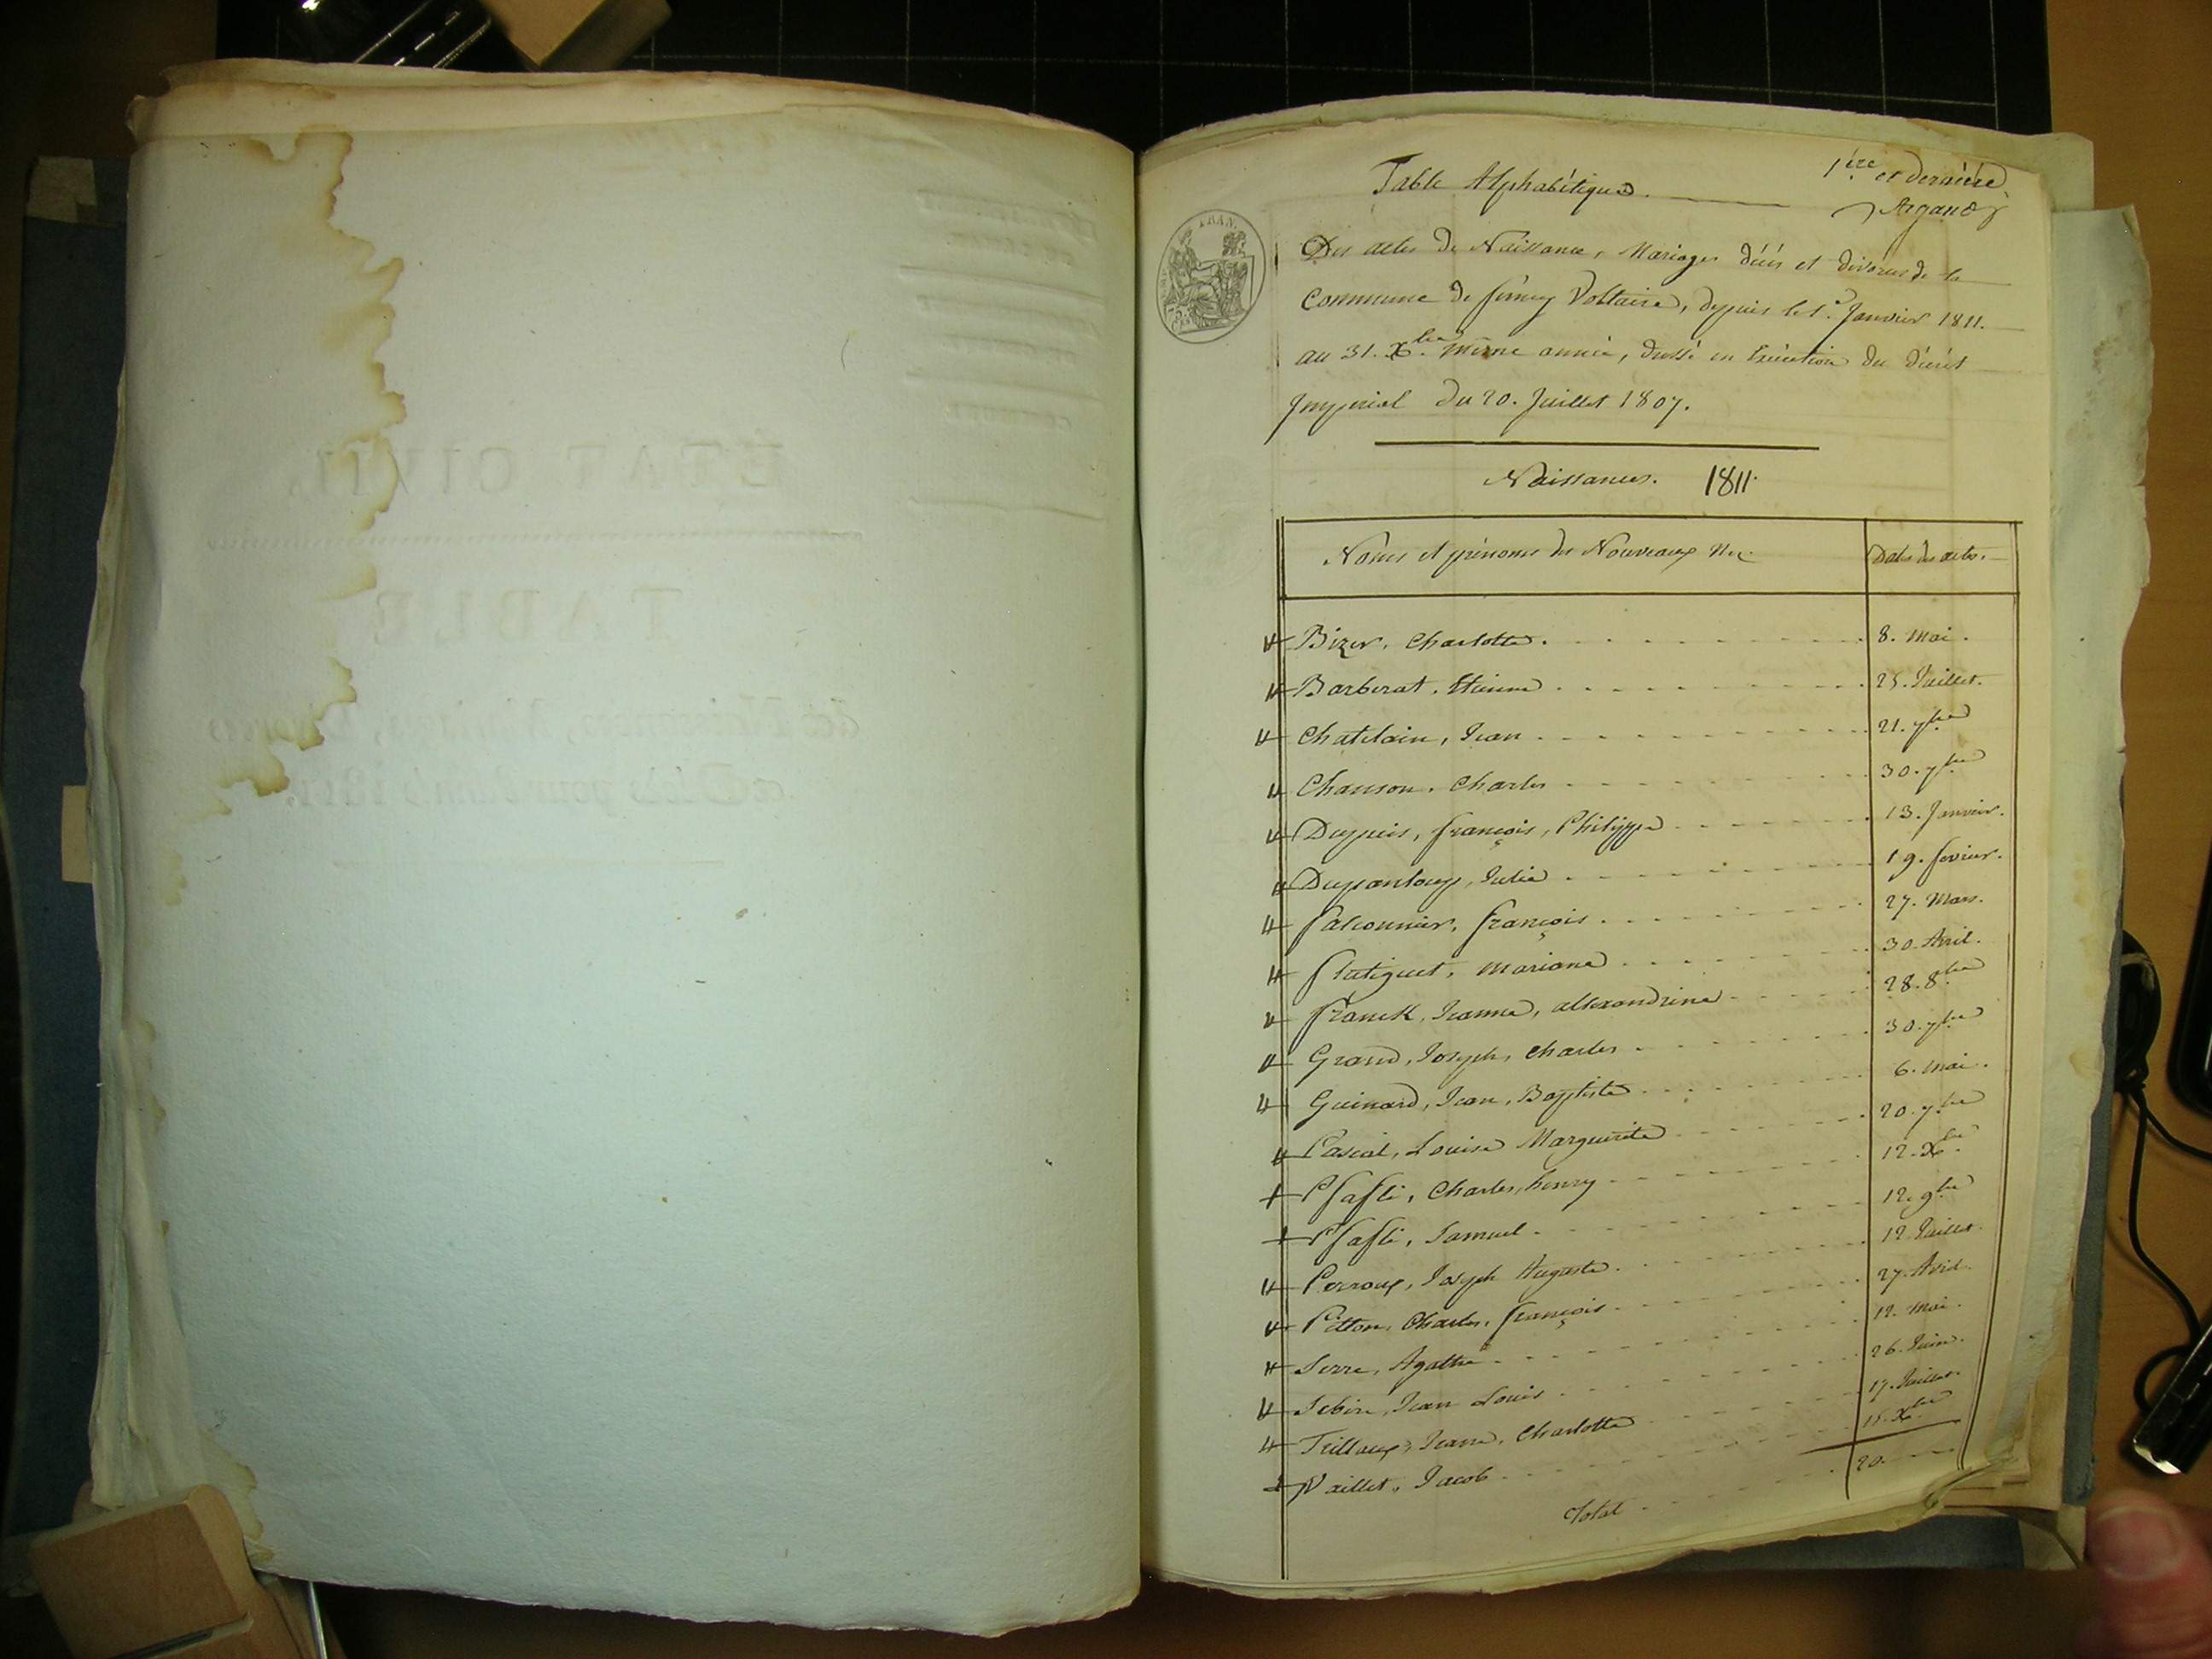 ÉTAT CIVIL.
TABLE
1ère et dernière
Table Alphabétique.
Argand
Des actes de Naissance, Mariages décès et divorces de la
Commune de ferney Voltaire, depuis le 1er Janvier 1811.
au 31. Xbre même année, dressé en Exécution du décret
Imperial du 20. Juillet 1807.
Naissances. 1811.
Noms et prénoms des Nouveaux Nés Dates des actes.
Bizer, Charlotte. 8. Mai.
Barberat, Etienne 25. Juillet.
Chatelain, Jean 21. 7bre
Chanson, Charles 30. 7bre
Dupuis, françois, Philippe 13. Janvier.
Dupanloup, Julie 19. fevrier.
falconnier, françois 27. Mars.
flutiguet, Mariane 30. Avril.
franck, Jeanne, allexandrine 28. 8bre
Grand, Joseph, Charles 30. 7bre
Guinard, Jean, Baptiste 6. Mai.
Pascal, Louise Marguerite 20. 7bre
Pfafli, Charles, henry 12. Xbre
Pfafli, Samuel 12. 9bre
Perroux, Joseph Auguste 12 Juillet.
Pitton, Charles, françois 27. Avril.
Serre, Agathe 12. Mai.
Jean Louis 26. Juin.
Trilloux, Jeanne, Charlotte 17. Juillet.
Vaillet, Jacob 15. Xbre
Total 20.